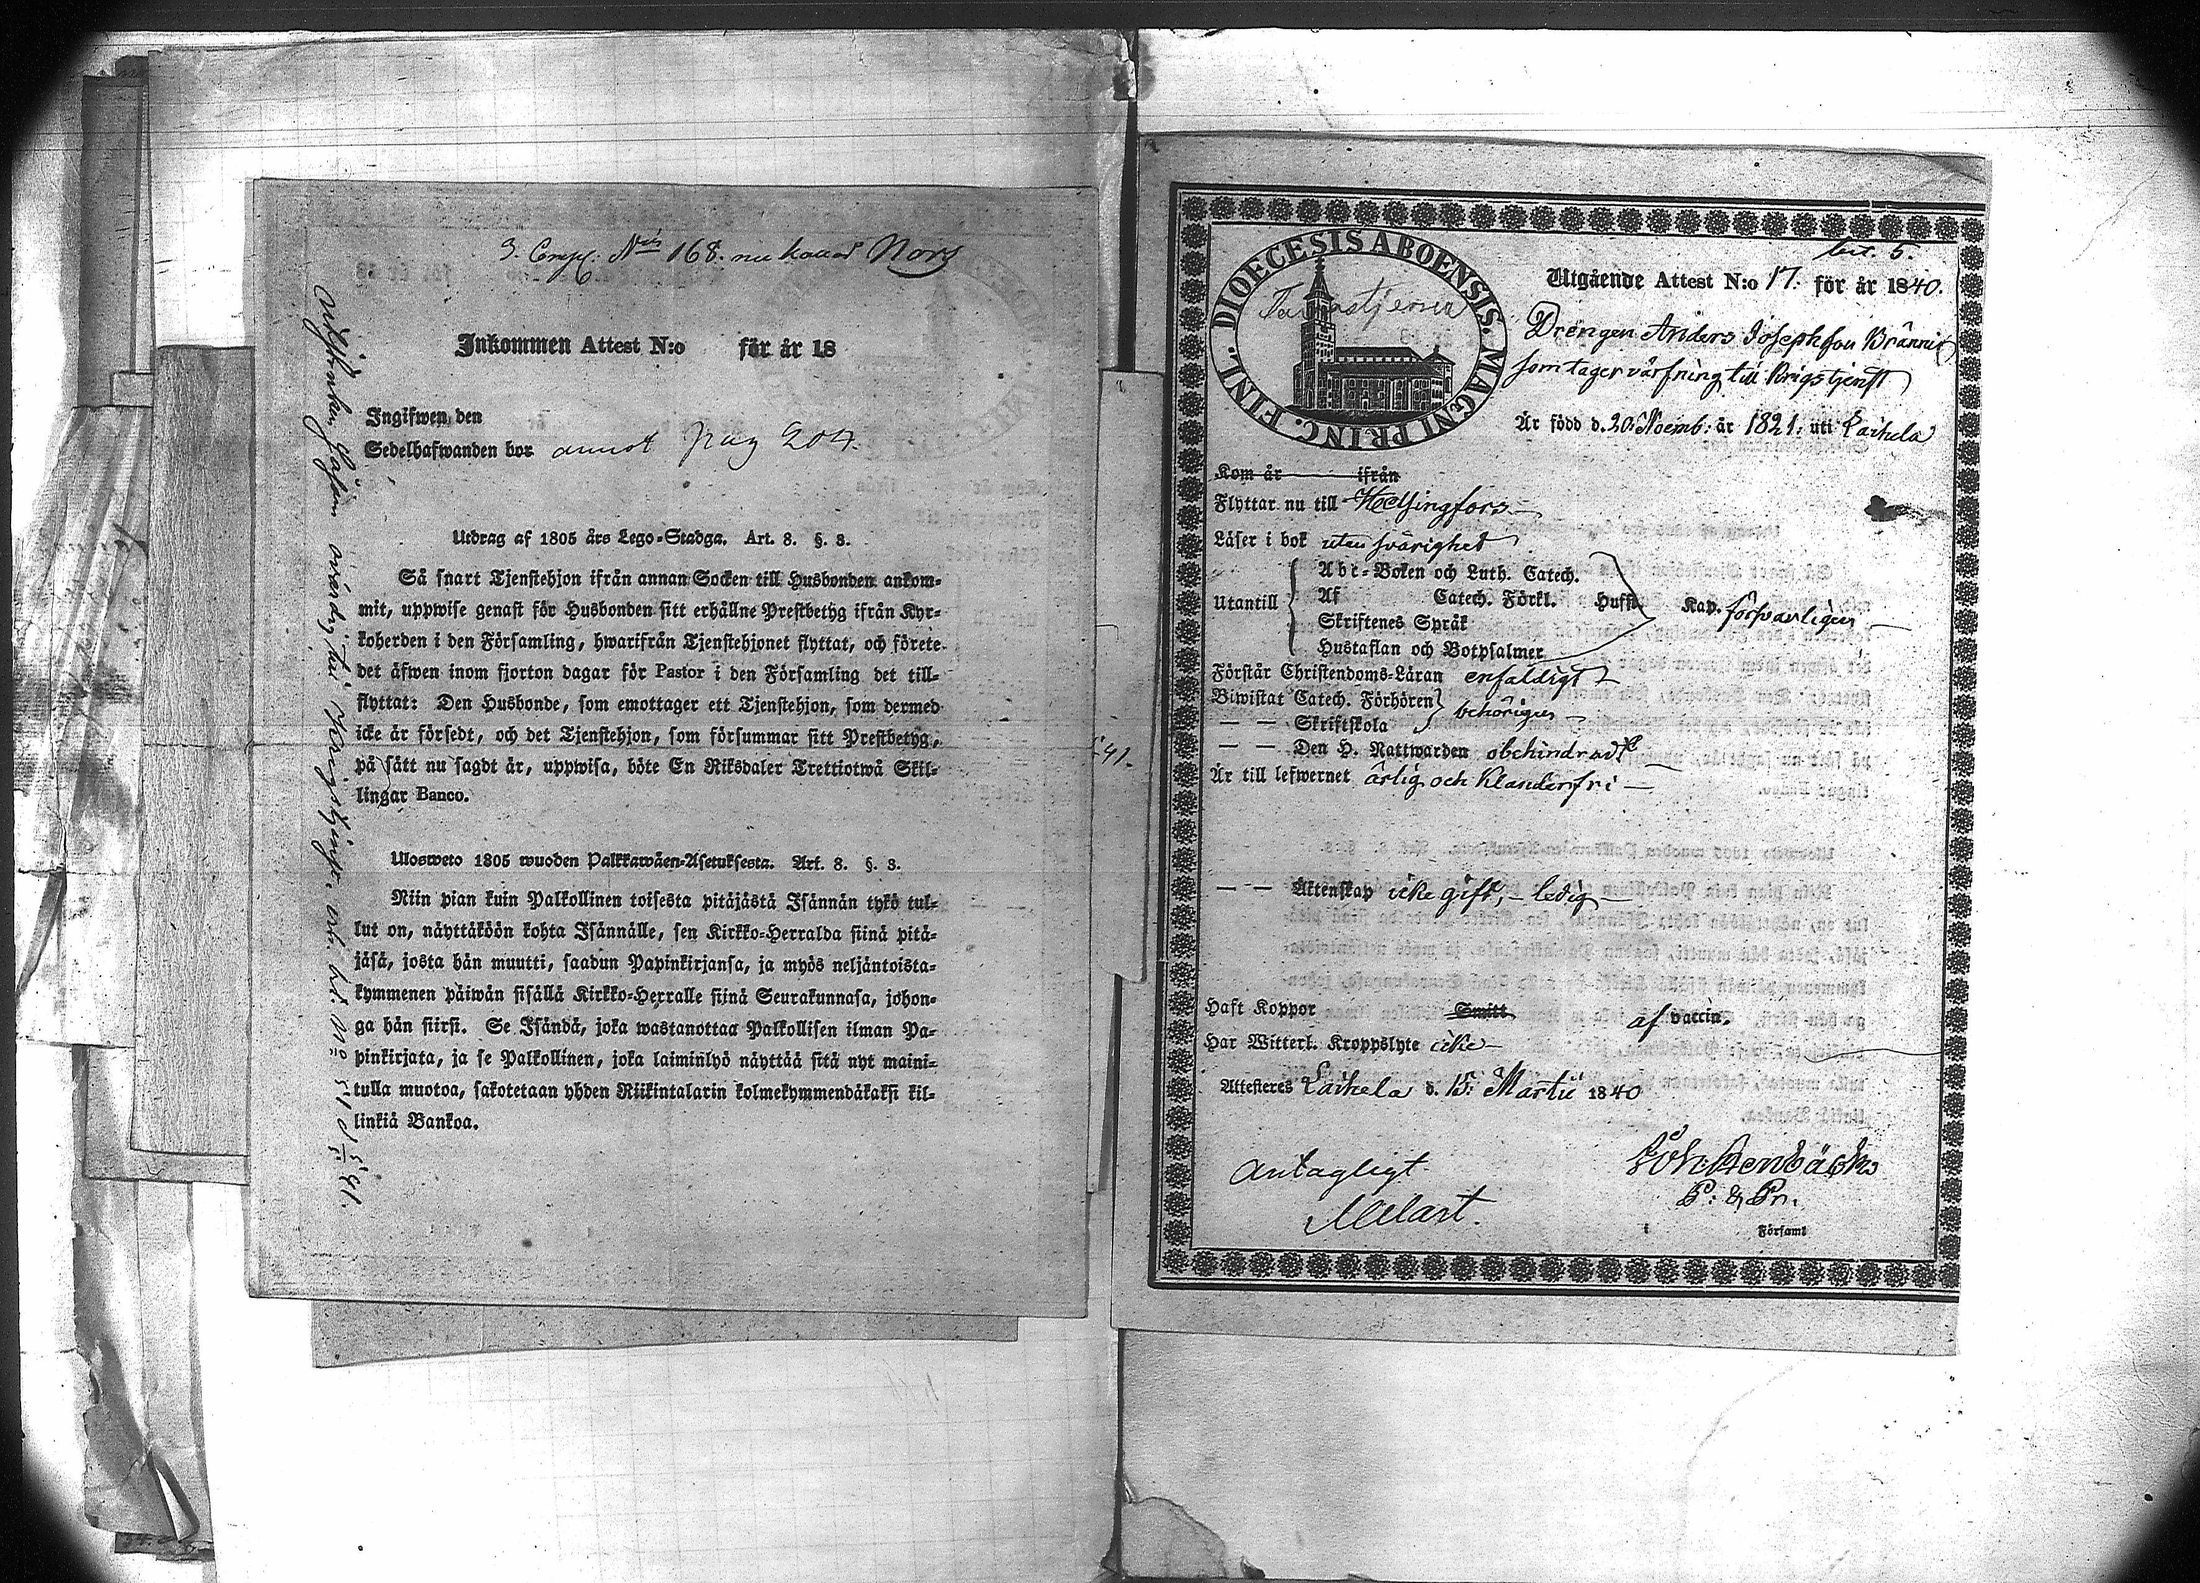 3. Comp. N:ris 168. nu kallad Nors
Inkommen Attest N:o för år 18
Ingifwen den
Sedelhafwanden bor annot pag 204.
Utdrag af 1805 års Lego-Stadga. Art. 8. §. 8.
Så snart Tjenstehjon ifrån annan Socken till Husbonden ankom-
mit, uppwise genast för Husbonden sitt erhållne Prestbetyg ifrån Kyr-
koherden i den Församling, hwarifrån Tjenstehjonet flyttat, och förete
det äfwen inom fjorton dagar för Pastor i den Församling det till-
flyttat: Den Husbonde, som emottager ett Tjenstehjon, som dermed
icke är försedt, och det Tjenstehjon, som försummar sitt Prestbetyg,
på sätt nu sagdt är, uppwisa, böte En Riksdaler Trettiotwå Skil-
lingar Banco.
Ulosweto 1805 wuoden Palkkawäen-Asetuksesta. Art. 8. §. 8.
Niin pian kuin Palkollinen toisesta pitäjästä Isännän tykö tul-
lut on, näyttäköön kohta Isännälle, sen Kirkko-Herralda siinä pitä-
jäsä, josta hän muutti, saadun Papinkirjansa, ja myös neljäntoista-
kymmenen päiwän sisällä Kirkko-Herralle siinä Seurakunnasa, johon-
ga hän siirsi. Se Isändä, joka wastanottaa Palkollisen ilman Pa-
pinkirjata, ja se Palkollinen, joka laiminlyö näyttää sitä nyt maini-
tulla muotoa, sakotetaan yhden Riikintalarin kolmekymmendäkaksi kil-
linkiä Bankoa.
41.
FINL. DIOECESIS ABOENSIS. MAGNI PRINC.
lit. 5.
Utgående Attest N:o 17. för år 1840.
Drengen Anders Josephson Brännis
som tager värfning till Krigstjenst
Är född d. 20. Novemb: år 1821. uti Laihela
Kom år ifrån
Flyttar nu till Helsingfors
Läser i bok utan svårighet
Utantill
Abc-Boken och Luth. Catech.
Af Catech. Förkl. Huffs Kap. försvarligen
Skriftenes Språk
Hustaflan och Botpsalmer
Förstår Christendoms-Läran enfaldigt
Biwistat Catech. Förhören
— — Skriftskola behörigen
— — Den H. Nattwarden obehindradt
Är till lefwernet ärlig och klanderfri
— — Äktenskap icke gift, – ledig
Haft Koppor Smitt af vaccin.
Har Witterl. Kroppslyte icke
Attesteres Laihela d. 15. Martii 1840
Antagligt
P: & Pr.
i Församl